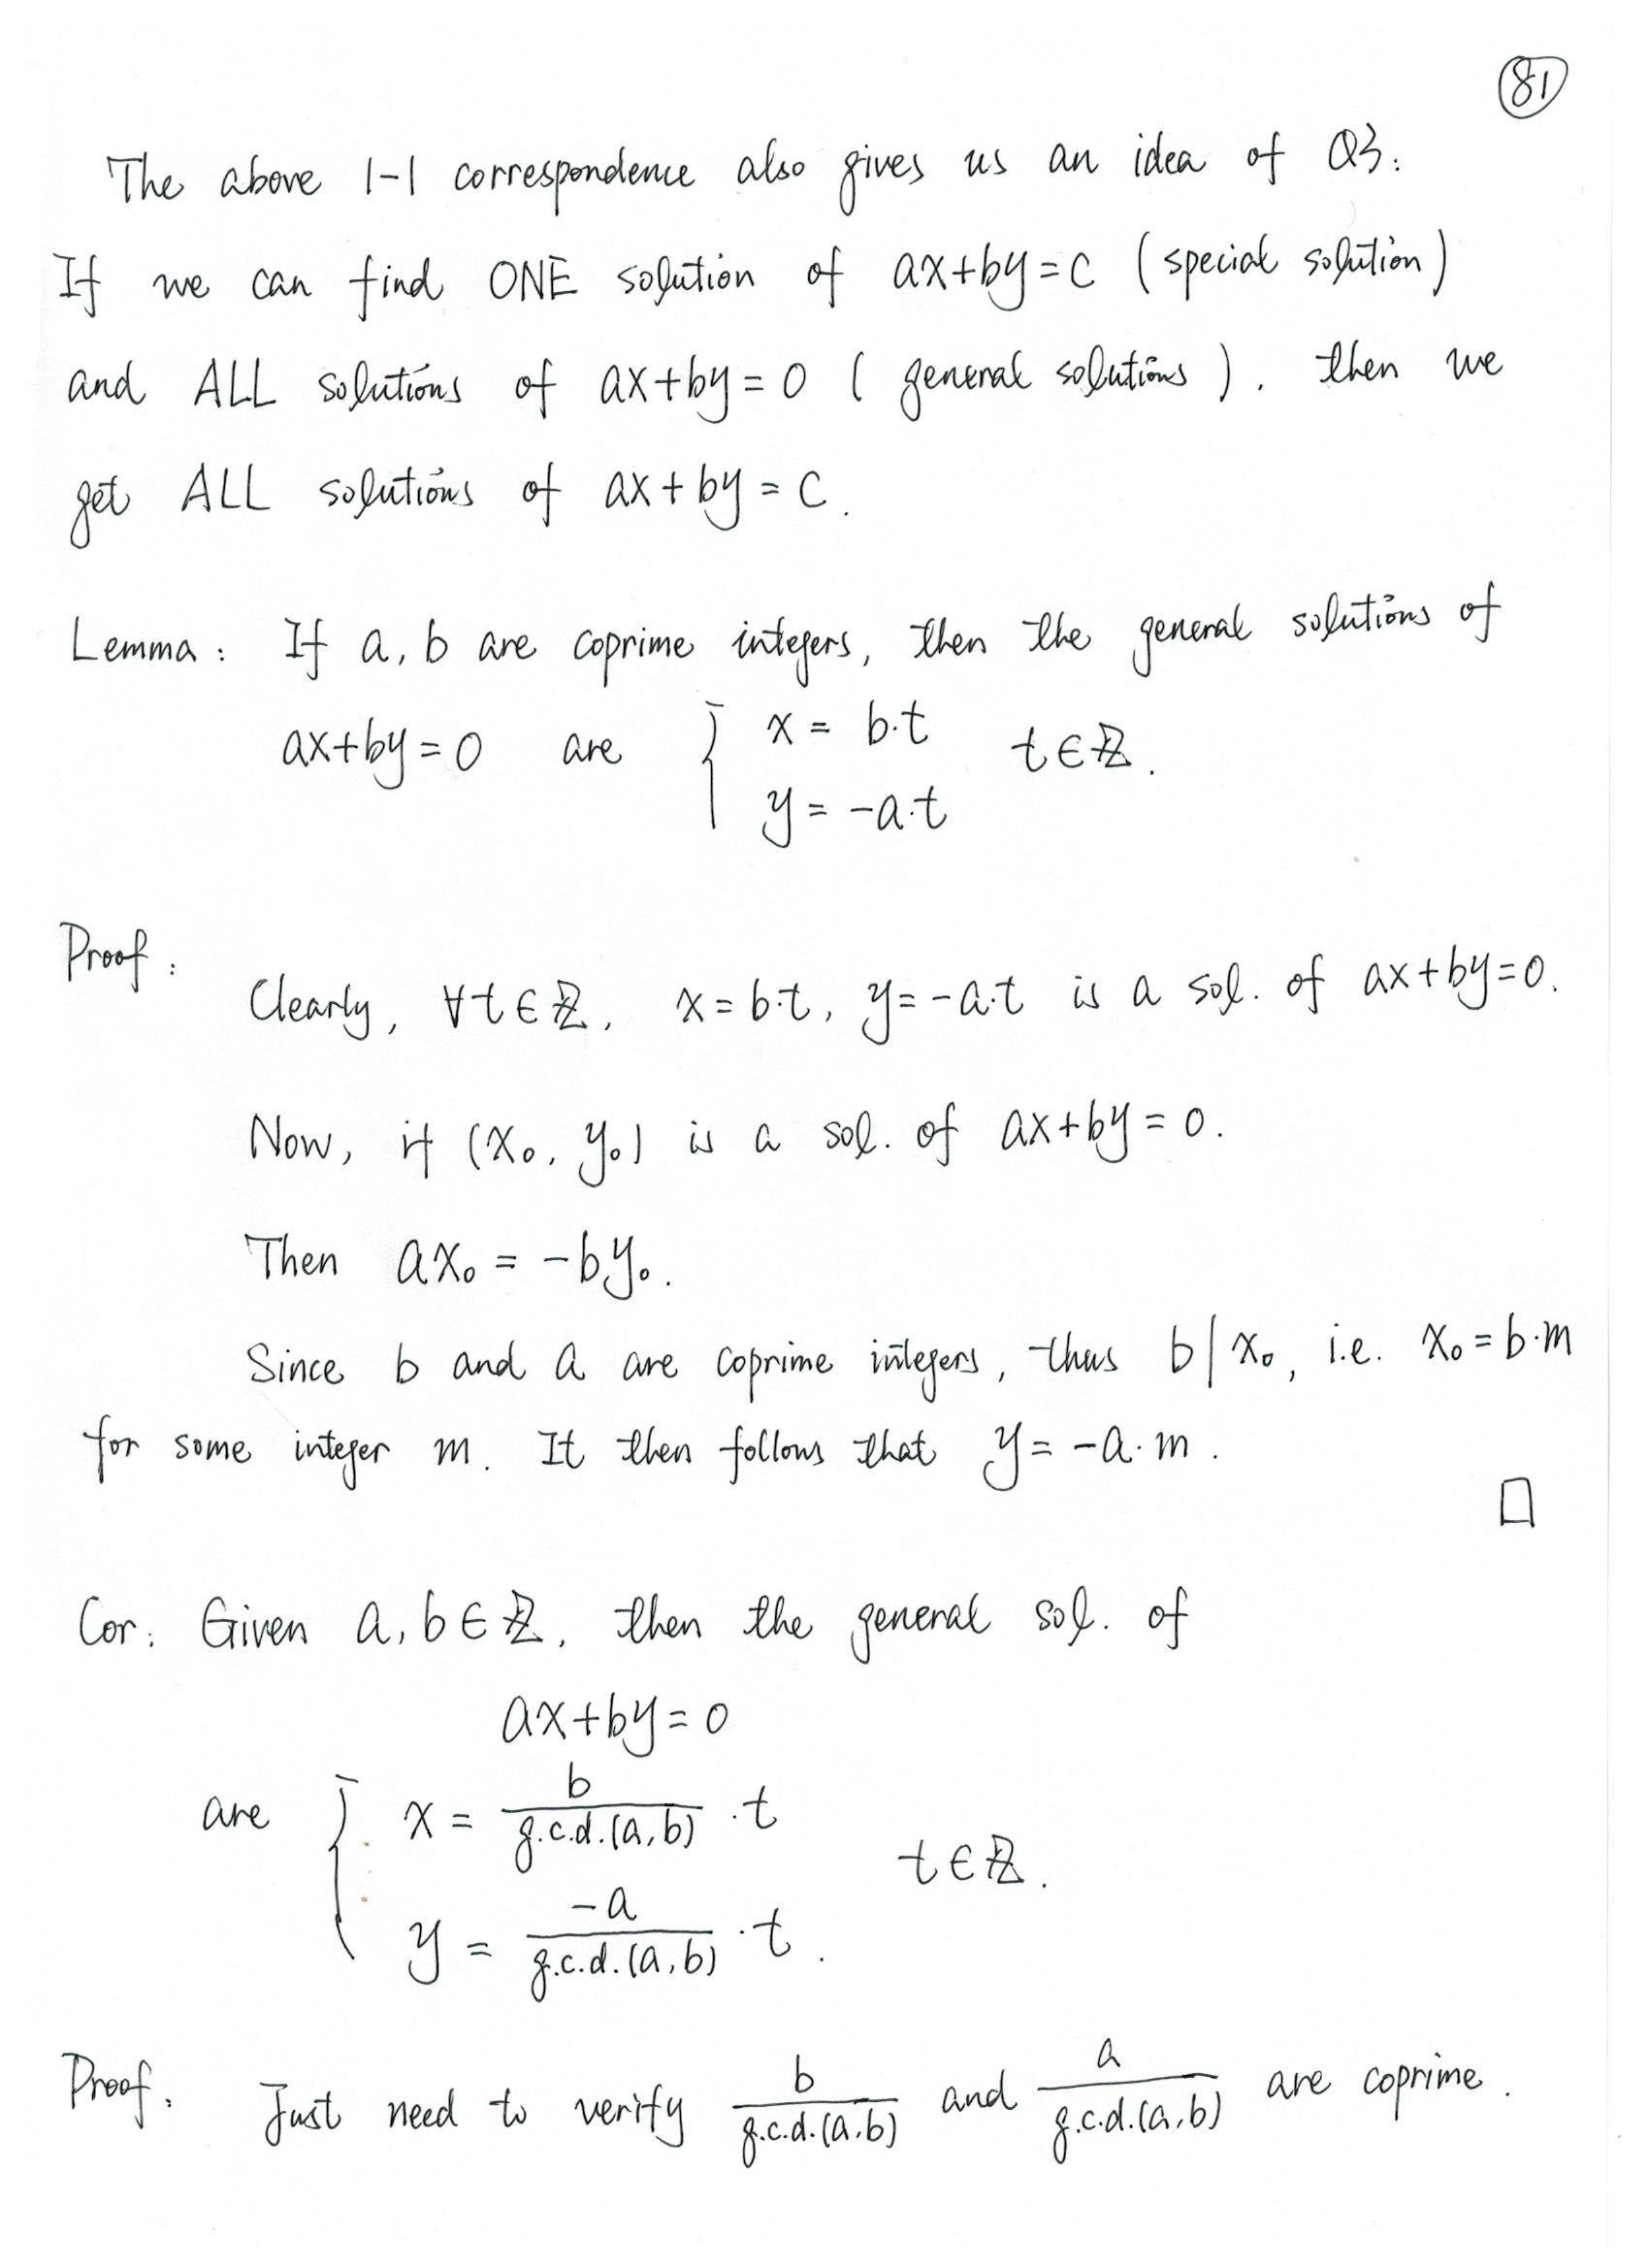 81
The above 1-1 correspondence also gives us an idea of Q3:
If we can find ONE solution of ax+by=c (special solution)
and ALL solutions of ax+by=0 (general solutions), then we
get ALL solutions of ax+by=c.
Lemma: If a, b are coprime integers, then the general solutions of
ax+by=0 are { x = b·t
y = -a·t t∈ℤ.
Proof:
Clearly, ∀t∈ℤ, x=b·t, y=-a·t is a sol. of ax+by=0.
Now, if (x₀, y₀) is a sol. of ax+by=0.
Then ax₀ = -by₀.
Since b and a are coprime integers, thus b|x₀, i.e. x₀=b·m
for some integer m. It then follows that y=-a·m.
□
Cor: Given a, b∈ℤ, then the general sol. of
ax+by=0
are { x = b/g.c.d.(a,b) ·t
y = -a/g.c.d.(a,b) ·t. t∈ℤ.
Proof. Just need to verify b/g.c.d.(a,b) and a/g.c.d.(a,b) are coprime.